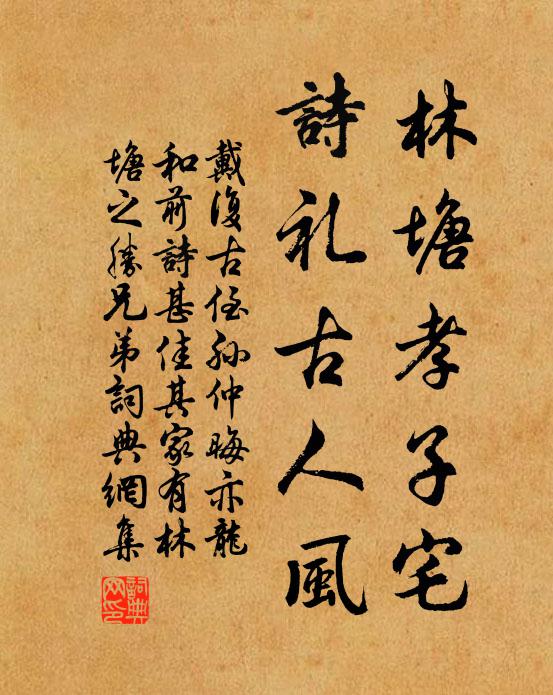 林塘孝子宅
詩礼古人風
戴復古侄孙仲晦亦龍
和前詩甚佳其家有林
塘之勝兄弟詞典網集
詞典
网印